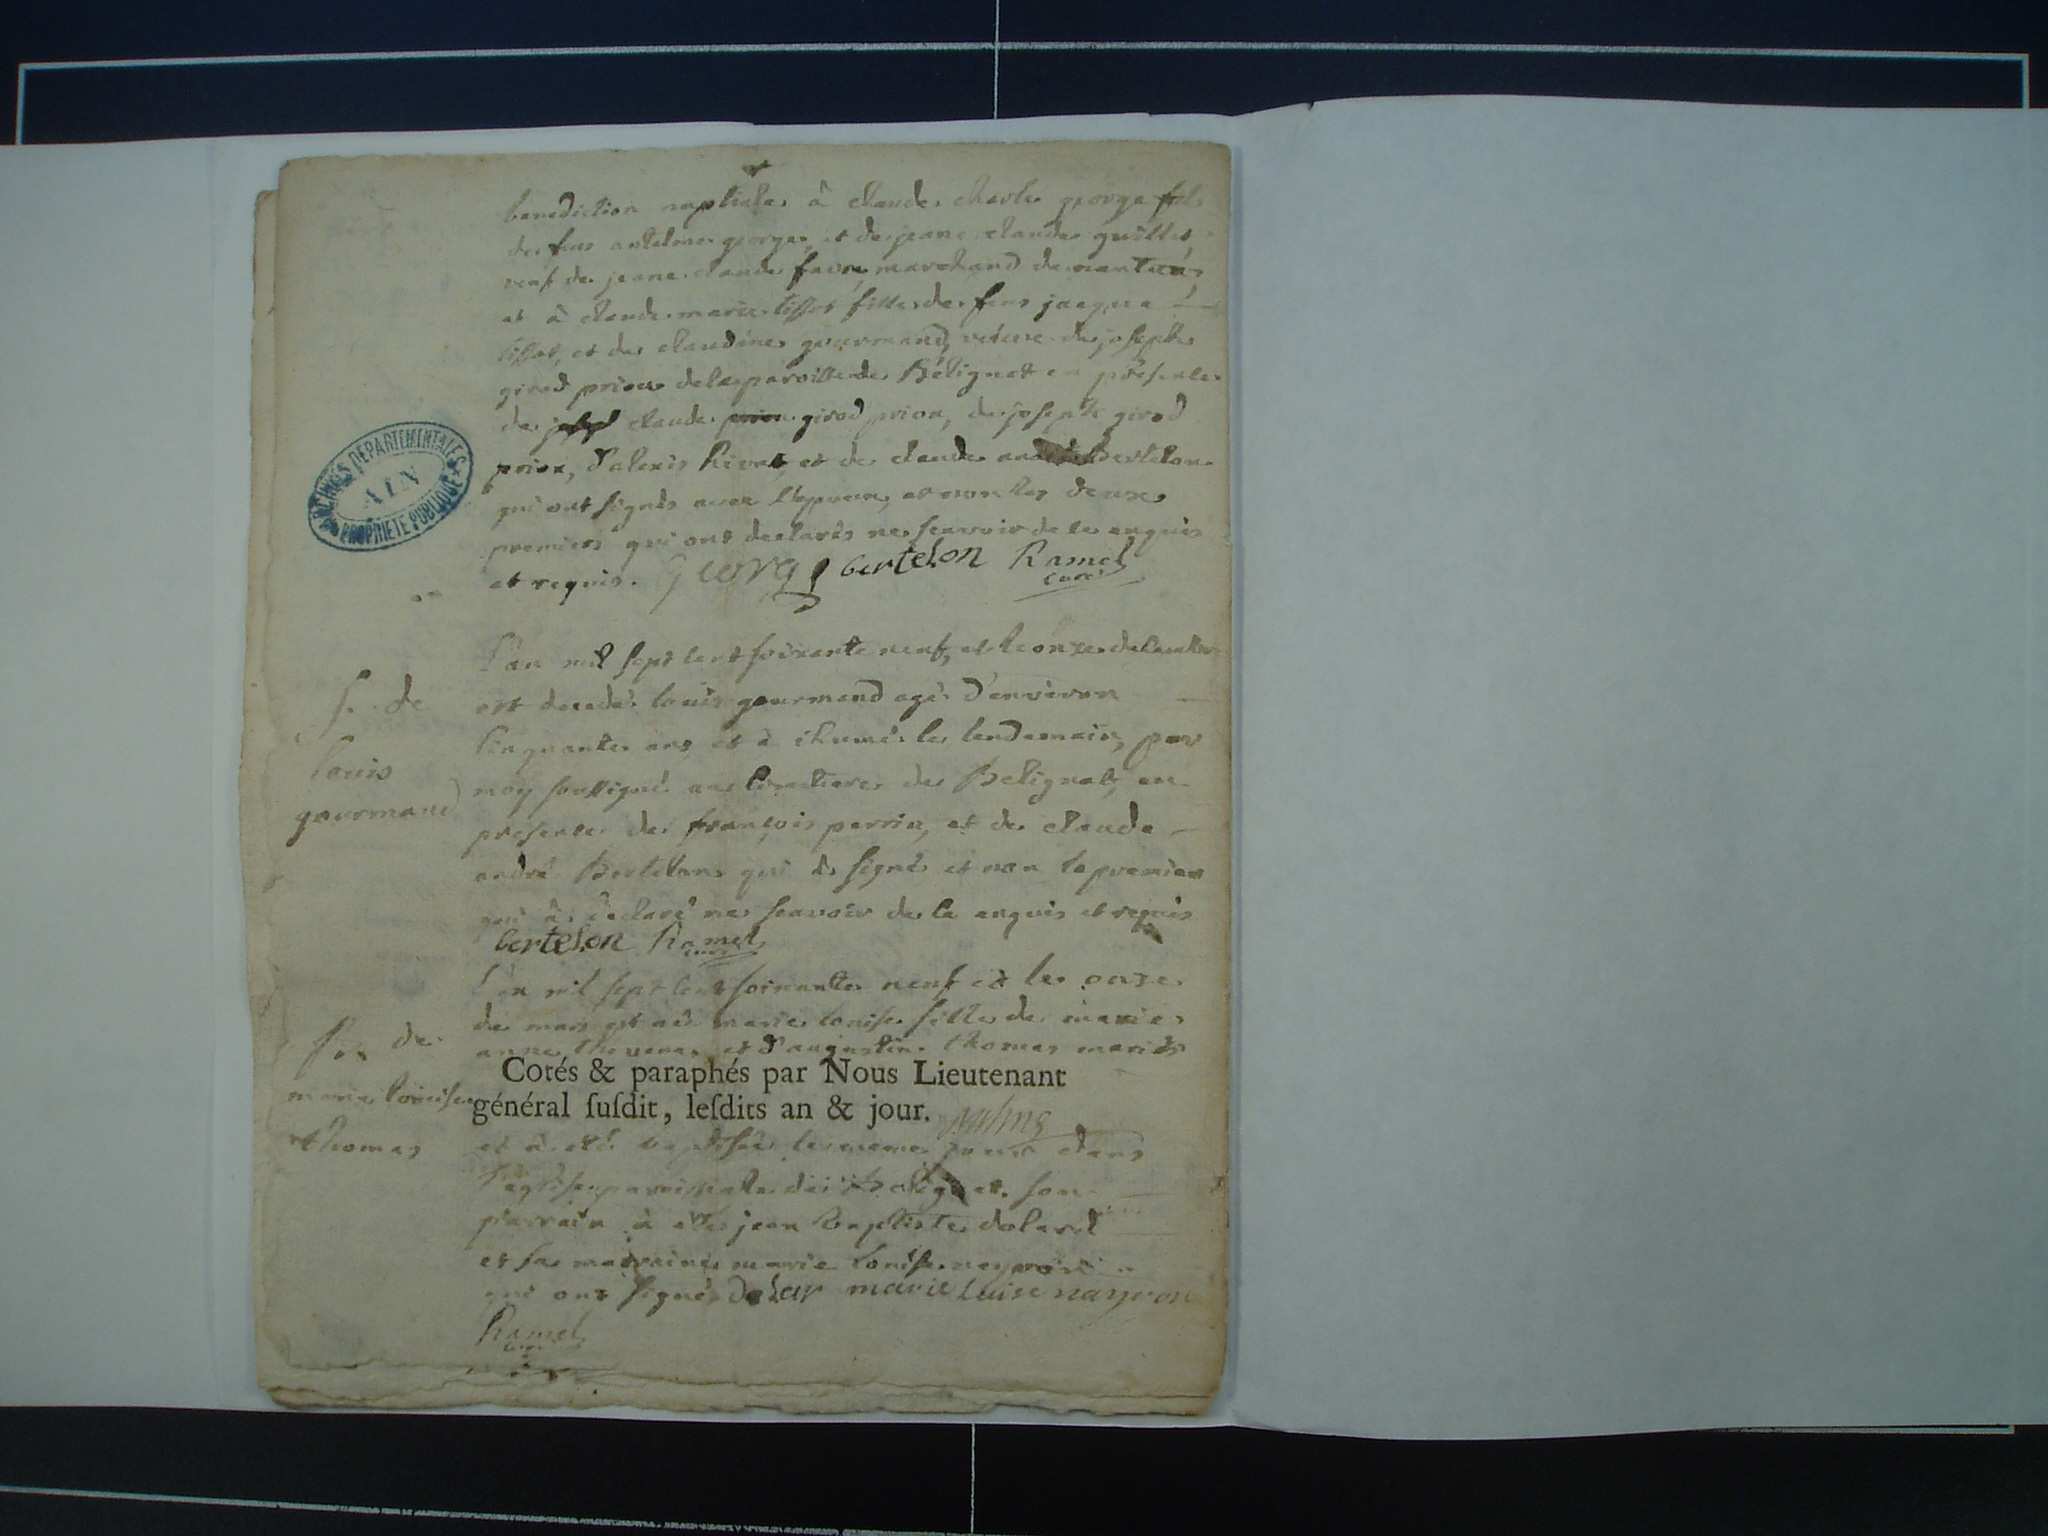 benediction nuptiales à claude charle george fils
de feus antelme george, et de jeane claude guillet,
veuf de jeane claude favre marchand de nantua,
et à claude marie tissot fille de feus jacque
tissot, et de claudine gourmand, veuve de joseph
girod prion de la paroisse de Bélignat en présence
de claude girod prion, de joseph girod
prion, d'alexis Rivat, et de claude andré Bertelon
qui ont signés avec l'epoux, et non les deux
premiers qui ont declarés ne scavoir de le enquis
et requis. George bertelon Ramel
curé
L'an mil sept cent soixante neuf, et le onze
est decedé louis gourmand agé d'environ
cinquante ans, et à ihumé le lendemain, par
moy soussigné au cimetiere de Belignat, en
presence de françois perrin, et de claude
andré Bertelon qui à signé et non le premier
qui à declaré ne scavoir de le enquis et requis
bertelon Ramel
curé
s. de
louis
gourmand
L'an mil sept cent soixante neuf et le onze
de mars est née marie louise fille de marie
anne et d'augustin thomas mariés
Cotés & paraphés par Nous Lieutenant
général susdit, lesdits an & jour.
et à eté baptisée le meme jour dans
l'église paroissiale de Belignat. son
parrain à eté jean baptiste dolard
et sa marraine marie louise neyron
qui ont signés Dolar marie Luise nayron
Ramel
curé
de
marie louise
thomas
ARCHIVES DÉPARTEMENTALES
AIN
PROPRIÉTÉ PUBLIQUE